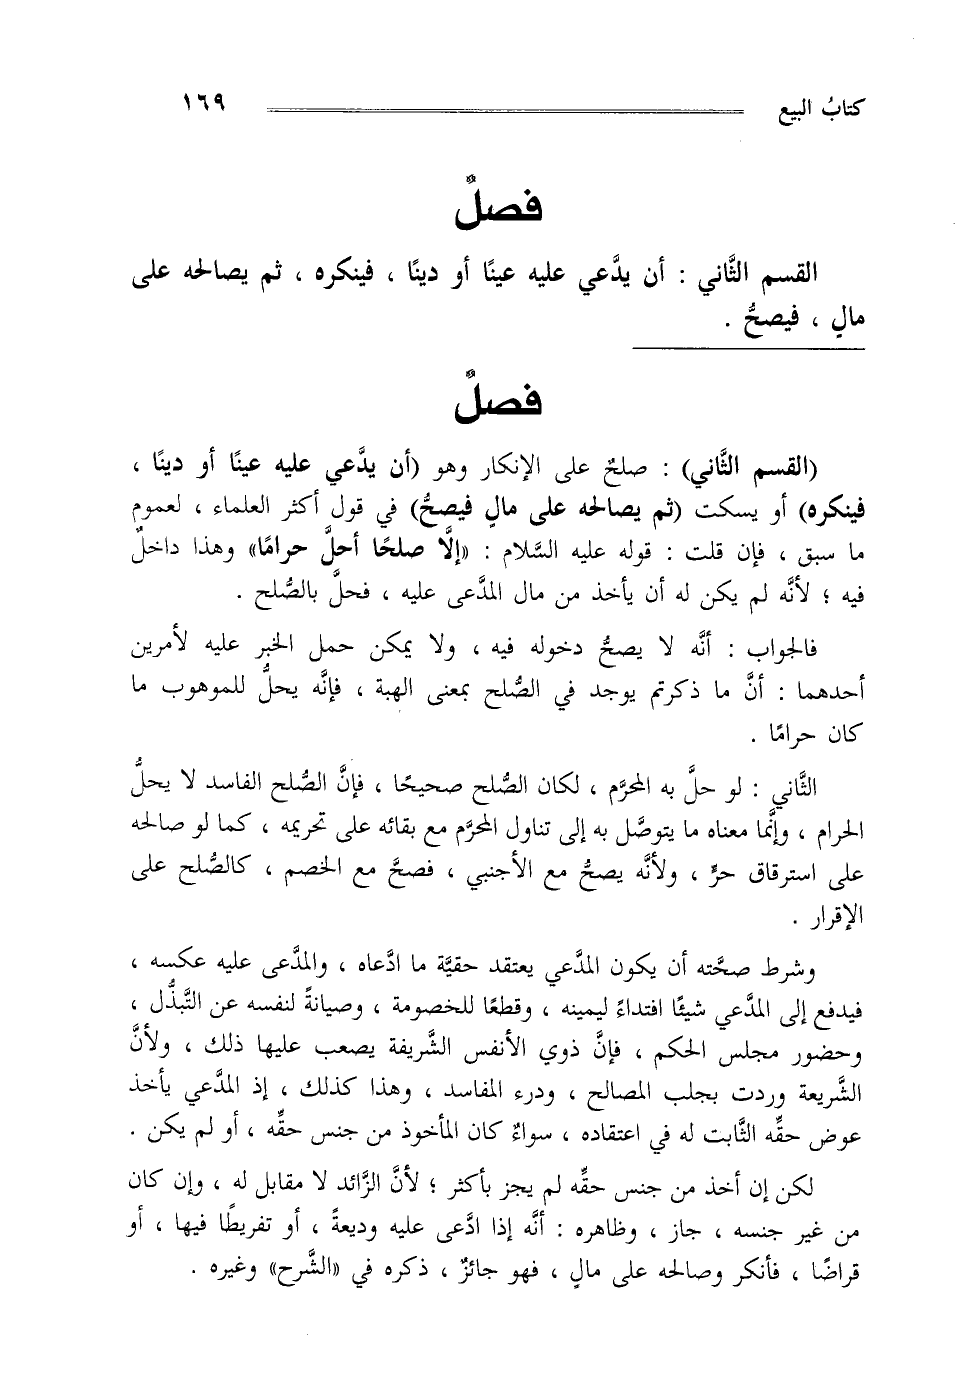 كتابُ البيع ١٦٩
فصلٌ
القسم الثَّاني : أن يدَّعي عليه عينًا أو دينًا ، فينكره ، ثم يصالحه على
مالٍ ، فيصحُّ .
فصلٌ
(القسم الثَّاني) : صلحٌ على الإنكار وهو (أن يدَّعي عليه عينًا أو دينًا ،
فينكره) أو يسكت (ثم يصالحه على مالٍ فيصحُّ) في قول أكثر العلماء ، لعموم
ما سبق ، فإن قلت : قوله عليه السَّلام : «إلَّا صلحًا أحلَّ حرامًا» وهذا داخلٌ
فيه ؛ لأنَّه لم يكن له أن يأخذ من مال المدَّعى عليه ، فحلَّ بالصُّلح .
فالجواب : أنَّه لا يصحُّ دخوله فيه ، ولا يمكن حمل الخبر عليه لأمرين
أحدهما : أنَّ ما ذكرتم يوجد في الصُّلح بمعنى الهبة ، فإنَّه يحلُّ للموهوب ما
كان حرامًا .
الثَّاني : لو حلَّ به المحرَّم ، لكان الصُّلح صحيحًا ، فإنَّ الصُّلح الفاسد لا يحلُّ
الحرام ، وإنَّما معناه ما يتوصَّل به إلى تناول المحرَّم مع بقائه على تحريمه ، كما لو صالحه
على استرقاق حرٍّ ، ولأنَّه يصحُّ مع الأجنبي ، فصحَّ مع الخصم ، كالصُّلح على
الإقرار .
وشرط صحَّته أن يكون المدَّعي يعتقد حقيَّة ما ادَّعاه ، والمدَّعى عليه عكسه ،
فيدفع إلى المدَّعي شيئًا افتداءً ليمينه ، وقطعًا للخصومة ، وصيانةً لنفسه عن التَّبذُّل ،
وحضور مجلس الحكم ، فإنَّ ذوي الأنفس الشَّريفة يصعب عليها ذلك ، ولأنَّ
الشَّريعة وردت بجلب المصالح ، ودرء المفاسد ، وهذا كذلك ، إذ المدَّعي يأخذ
عوض حقِّه الثَّابت له في اعتقاده ، سواءٌ كان المأخوذ من جنس حقِّه ، أو لم يكن .
لكن إن أخذ من جنس حقِّه لم يجز بأكثر ؛ لأنَّ الزَّائد لا مقابل له ، وإن كان
من غير جنسه ، جاز ، وظاهره : أنَّه إذا ادَّعى عليه وديعةً ، أو تفريطًا فيها ، أو
قراضًا ، فأنكر وصالحه على مالٍ ، فهو جائزٌ ، ذكره في «الشَّرح» وغيره .